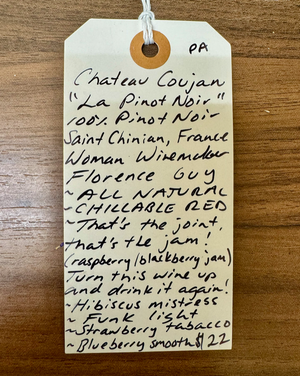 PA
Chateau Coujan
"La Pinot Noir"
100% Pinot Noir
Saint Chinian, France
Woman Winemaker
Florence Guy
~ ALL NATURAL
~ CHILLABLE RED
~ That's the joint,
that's the jam!
(raspberry/blackberry jam)
Turn this wine up
and drink it again!
~ Hibiscus mistress
~ Funk light
~ Strawberry tabacco
~ Blueberry smooth $22